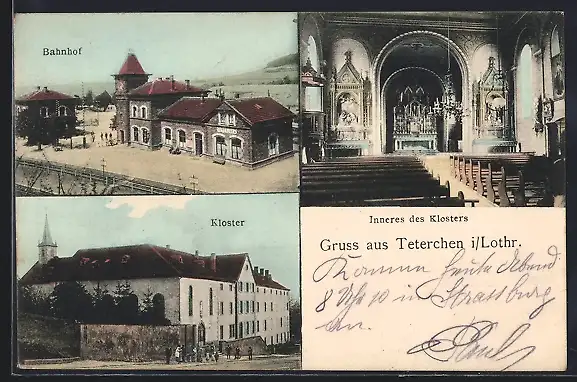 Bahnhof
Inneres des Klosters
Kloster
Gruss aus Teterchen i/Lothr.
Komme heute Abend
8 Uhr 10 in Strassburg
an.
Paul